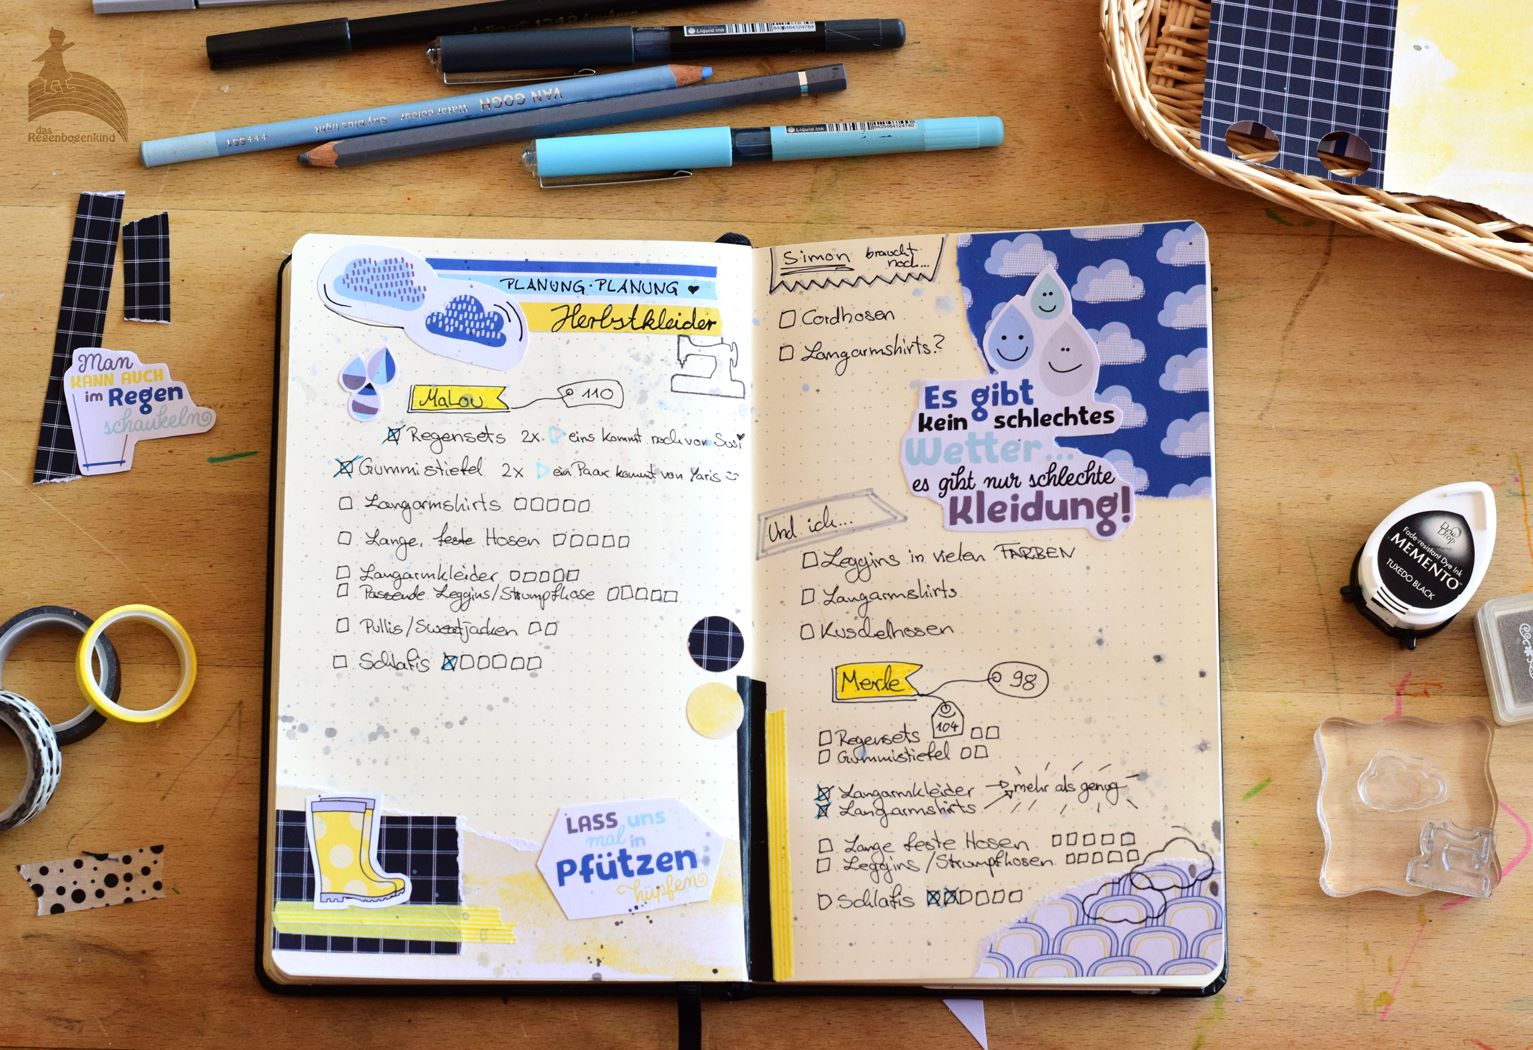 das
Regenbogenkind
Liquid ink
VAN GOGH Water colour Sky blue light
Liquid ink
Man
KANN AUCH
im Regen
schaukeln
PLANUNG·PLANUNG ♥
Herbstkleider
Malou 110
Regensets 2x eins kommt noch von Susi
Gummistiefel 2x ein Paar kommt von Yaris
Langarmshirts
Lange, feste Hosen
Langarmkleider
Passende Leggins/Strumpfhose
Pullis/Sweatjacken
Schlafis
LASS uns
mal in
Pfützen
hüpfen
Simon braucht
noch...
Cordhosen
Langarmshirts?
Es gibt
kein schlechtes
Wetter...
es gibt nur schlechte
Kleidung!
Und ich...
Leggins in vielen FARBEN
Langarmshirts
Kuschelhosen
Merle 98
104
Regensets
Gummistiefel
Langarmkleider mehr als genug
Langarmshirts
Lange feste Hosen
Leggins/Strumpfhosen
Schlafis
Dew
Drop
Fade-resistant Dye Ink
MEMENTO
TUXEDO BLACK